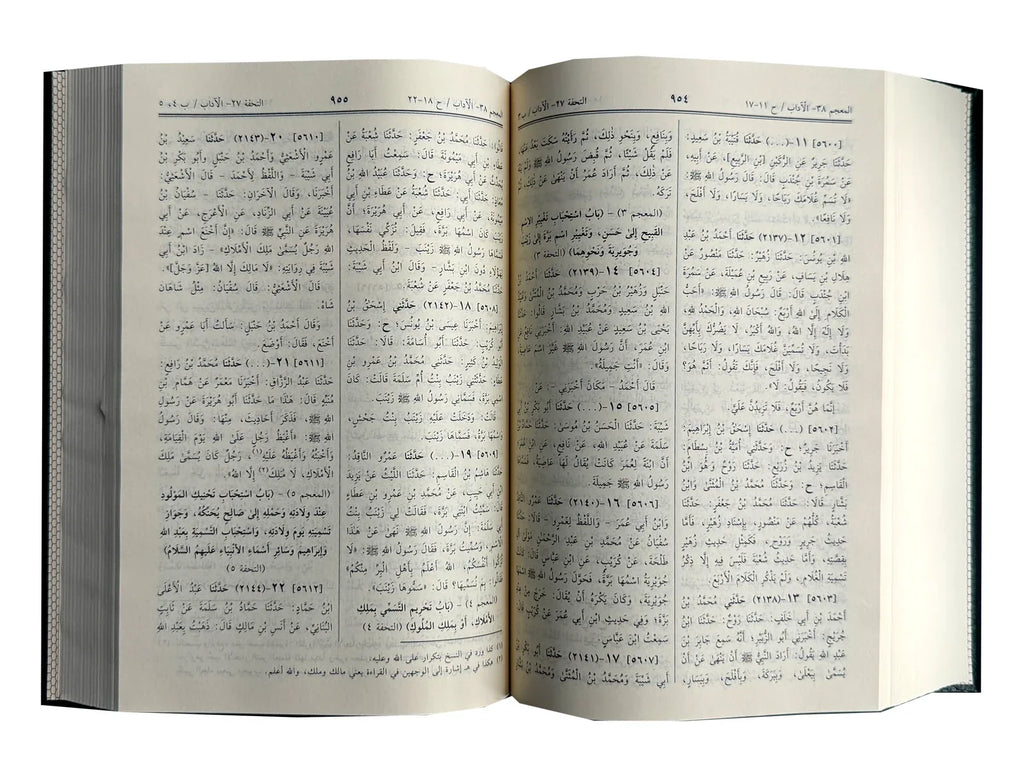 المعجم ٣٨- الآداب / ح ١١-١٧
٩٥٤
التحفة ٢٧- الآداب / ب ٢
[٥٦٠٠] ١١-(...) حَدَّثَنَا قُتَيْبَةُ بْنُ سَعِيدٍ:
حَدَّثَنَا جَرِيرٌ عَنِ الرُّكَيْنِ [ابْنِ الرَّبِيعِ]، عَنْ أَبِيهِ،
عَنْ سَمُرَةَ بْنِ جُنْدَبٍ قَالَ: قَالَ رَسُولُ اللهِ ﷺ:
«لَا تُسَمِّ غُلَامَكَ رَبَاحًا، وَلَا يَسَارًا، وَلَا أَفْلَحَ،
وَلَا نَافِعًا».
[٥٦٠١] ١٢-(٢١٣٧) حَدَّثَنَا أَحْمَدُ بْنُ عَبْدِ
اللهِ بْنِ يُونُسَ: حَدَّثَنَا زُهَيْرٌ: حَدَّثَنَا مَنْصُورٌ عَنْ
هِلَالِ بْنِ يَسَافٍ عَنْ رَبِيعِ بْنِ عُمَيْلَةَ، عَنْ سَمُرَةَ
ابْنِ جُنْدَبٍ قَالَ: قَالَ رَسُولُ اللهِ ﷺ: «أَحَبُّ
الْكَلَامِ إِلَى اللهِ أَرْبَعٌ: سُبْحَانَ اللهِ، وَالْحَمْدُ لِلّٰهِ،
وَلَا إِلٰهَ إِلَّا اللهُ، وَاللهُ أَكْبَرُ، لَا يَضُرُّكَ بِأَيِّهِنَّ
بَدَأْتَ، وَلَا تُسَمِّيَنَّ غُلَامَكَ يَسَارًا، وَلَا رَبَاحًا،
وَلَا نَجِيحًا، وَلَا أَفْلَحَ، فَإِنَّكَ تَقُولُ: أَثَمَّ هُوَ؟
فَلَا يَكُونُ، فَيَقُولُ: لَا».
إِنَّمَا هُنَّ أَرْبَعٌ، فَلَا تَزِيدُنَّ عَلَيَّ.
[٥٦٠٢] (...) حَدَّثَنَا إِسْحَقُ بْنُ إِبْرَاهِيمَ:
أَخْبَرَنَا جَرِيرٌ؛ ح: وَحَدَّثَنِي أُمَيَّةُ بْنُ بِسْطَامَ:
حَدَّثَنَا يَزِيدُ بْنُ زُرَيْعٍ: حَدَّثَنَا رَوْحٌ وَهُوَ ابْنُ
الْقَاسِمِ؛ ح: وَحَدَّثَنَا مُحَمَّدُ بْنُ الْمُثَنَّى وَابْنُ
بَشَّارٍ قَالَا: حَدَّثَنَا مُحَمَّدُ بْنُ جَعْفَرٍ: حَدَّثَنَا
شُعْبَةُ، كُلُّهُمْ عَنْ مَنْصُورٍ، بِإِسْنَادِ زُهَيْرٍ، فَأَمَّا
حَدِيثُ جَرِيرٍ وَرَوْحٍ، فَكَمِثْلِ حَدِيثِ زُهَيْرٍ
بِقِصَّتِهِ، وَأَمَّا حَدِيثُ شُعْبَةَ فَلَيْسَ فِيهِ إِلَّا ذِكْرُ
تَسْمِيَةِ الْغُلَامِ، وَلَمْ يَذْكُرِ الْكَلَامَ الْأَرْبَعَ.
[٥٦٠٣] ١٣-(٢١٣٨) حَدَّثَنِي مُحَمَّدُ بْنُ
أَحْمَدَ بْنِ أَبِي خَلَفٍ: حَدَّثَنَا رَوْحٌ: حَدَّثَنَا ابْنُ
جُرَيْجٍ: أَخْبَرَنِي أَبُو الزُّبَيْرِ؛ أَنَّهُ سَمِعَ جَابِرَ بْنَ
عَبْدِ اللهِ يَقُولُ: أَرَادَ النَّبِيُّ ﷺ أَنْ يَنْهَىٰ عَنْ أَنْ
يُسَمَّىٰ بِيَعْلَىٰ، وَبِبَرَكَةَ، وَبِأَفْلَحَ، وَبِيَسَارٍ،
وَبِنَافِعٍ، وَبِنَحْوِ ذٰلِكَ، ثُمَّ رَأَيْتُهُ سَكَتَ بَعْدُ عَنْهَا،
فَلَمْ يَقُلْ شَيْئًا، ثُمَّ قُبِضَ رَسُولُ اللهِ ﷺ وَلَمْ يَنْهَ
عَنْ ذٰلِكَ، ثُمَّ أَرَادَ عُمَرُ أَنْ يَنْهَىٰ عَنْ ذٰلِكَ، ثُمَّ
تَرَكَهُ.
(المعجم ٣) - (بَابُ اسْتِحْبَابِ تَغْيِيرِ الِاسْمِ
الْقَبِيحِ إِلَى حَسَنٍ، وَتَغْيِيرِ اسْمِ بَرَّةَ إِلَى زَيْنَبَ
وَجُوَيْرِيَةَ وَنَحْوِهِمَا) (التحفة ٣)
[٥٦٠٤] ١٤-(٢١٣٩) حَدَّثَنَا أَحْمَدُ بْنُ
حَنْبَلٍ وَزُهَيْرُ بْنُ حَرْبٍ وَمُحَمَّدُ بْنُ الْمُثَنَّى وَعُبَيْدُ
اللهِ بْنُ سَعِيدٍ وَمُحَمَّدُ بْنُ بَشَّارٍ قَالُوا: حَدَّثَنَا
يَحْيَىٰ بْنُ سَعِيدٍ عَنْ عُبَيْدِ اللهِ: أَخْبَرَنِي نَافِعٌ عَنِ
ابْنِ عُمَرَ، أَنَّ رَسُولَ اللهِ ﷺ غَيَّرَ اسْمَ عَاصِيَةَ،
وَقَالَ: «أَنْتِ جَمِيلَةُ».
قَالَ أَحْمَدُ - مَكَانَ أَخْبَرَنِي -: عَنْ.
[٥٦٠٥] ١٥-(...) حَدَّثَنَا أَبُو بَكْرِ بْنُ أَبِي
شَيْبَةَ: حَدَّثَنَا الْحَسَنُ بْنُ مُوسَىٰ: حَدَّثَنَا حَمَّادُ بْنُ
سَلَمَةَ عَنْ عُبَيْدِ اللهِ، عَنْ نَافِعٍ، عَنِ ابْنِ عُمَرَ
أَنَّ ابْنَةً لِعُمَرَ كَانَتْ يُقَالُ لَهَا عَاصِيَةُ،
فَسَمَّاهَا رَسُولُ اللهِ ﷺ جَمِيلَةَ.
[٥٦٠٦] ١٦-(٢١٤٠) حَدَّثَنَا عَمْرٌو النَّاقِدُ
وَابْنُ أَبِي عُمَرَ - وَاللَّفْظُ لِعَمْرٍو - قَالَا: حَدَّثَنَا
سُفْيَانُ عَنْ مُحَمَّدِ بْنِ عَبْدِ الرَّحْمٰنِ مَوْلَىٰ آلِ
طَلْحَةَ، عَنْ كُرَيْبٍ، عَنِ ابْنِ عَبَّاسٍ قَالَ: كَانَتْ
جُوَيْرِيَةُ اسْمُهَا بَرَّةُ، فَحَوَّلَ رَسُولُ اللهِ ﷺ اسْمَهَا
جُوَيْرِيَةَ، وَكَانَ يَكْرَهُ أَنْ يُقَالَ: خَرَجَ مِنْ عِنْدِ
بَرَّةَ؛ وَفِي حَدِيثِ ابْنِ أَبِي عُمَرَ عَنْ كُرَيْبٍ قَالَ:
سَمِعْتُ ابْنَ عَبَّاسٍ.
[٥٦٠٧] ١٧-(٢١٤١) حَدَّثَنَا أَبُو بَكْرِ بْنُ
أَبِي شَيْبَةَ وَمُحَمَّدُ بْنُ الْمُثَنَّىٰ وَمُحَمَّدُ بْنُ بَشَّارٍ
المعجم ٣٨- الآداب / ح ١٨-٢٢
٩٥٥
التحفة ٢٧- الآداب / ب ٤، ٥
قَالُوا: حَدَّثَنَا مُحَمَّدُ بْنُ جَعْفَرٍ: حَدَّثَنَا شُعْبَةُ عَنْ
عَطَاءِ بْنِ أَبِي مَيْمُونَةَ قَالَ: سَمِعْتُ أَبَا رَافِعٍ
يُحَدِّثُ عَنْ أَبِي هُرَيْرَةَ؛ ح: وَحَدَّثَنَا عُبَيْدُ اللهِ بْنُ
مُعَاذٍ: حَدَّثَنَا أَبِي: حَدَّثَنَا شُعْبَةُ عَنْ عَطَاءِ بْنِ أَبِي
مَيْمُونَةَ، عَنْ أَبِي رَافِعٍ، عَنْ أَبِي هُرَيْرَةَ؛ أَنَّ
زَيْنَبَ كَانَ اسْمُهَا بَرَّةَ، فَقِيلَ: تُزَكِّي نَفْسَهَا،
فَسَمَّاهَا رَسُولُ اللهِ ﷺ زَيْنَبَ - وَلَفْظُ الْحَدِيثِ
لِهٰؤُلَاءِ دُونَ ابْنِ بَشَّارٍ - وَقَالَ ابْنُ أَبِي شَيْبَةَ:
حَدَّثَنَا مُحَمَّدُ بْنُ جَعْفَرٍ عَنْ شُعْبَةَ.
[٥٦٠٨] ١٨-(٢١٤٢) حَدَّثَنِي إِسْحَقُ بْنُ
إِبْرَاهِيمَ: أَخْبَرَنَا عِيسَى بْنُ يُونُسَ؛ ح: وَحَدَّثَنَا
أَبُو كُرَيْبٍ: حَدَّثَنَا أَبُو أُسَامَةَ: قَالَا: حَدَّثَنَا
الْوَلِيدُ بْنُ كَثِيرٍ: حَدَّثَنِي مُحَمَّدُ بْنُ عَمْرِو بْنِ
عَطَاءٍ: حَدَّثَتْنِي زَيْنَبُ بِنْتُ أُمِّ سَلَمَةَ قَالَتْ: كَانَ
اسْمِي بَرَّةَ، فَسَمَّانِي رَسُولُ اللهِ ﷺ زَيْنَبَ.
قَالَتْ: وَدَخَلَتْ عَلَيْهِ زَيْنَبُ بِنْتُ جَحْشٍ،
وَاسْمُهَا بَرَّةُ، فَسَمَّاهَا زَيْنَبَ.
[٥٦٠٩] ١٩-(...) حَدَّثَنَا عَمْرٌو النَّاقِدُ:
حَدَّثَنَا هَاشِمُ بْنُ الْقَاسِمِ: حَدَّثَنَا اللَّيْثُ عَنْ يَزِيدَ
ابْنِ أَبِي حَبِيبٍ، عَنْ مُحَمَّدِ بْنِ عَمْرِو بْنِ عَطَاءٍ
قَالَ: سَمَّيْتُ ابْنَتِي بَرَّةَ، فَقَالَتْ لِي زَيْنَبُ بِنْتُ
أَبِي سَلَمَةَ: إِنَّ رَسُولَ اللهِ ﷺ نَهَىٰ عَنْ هٰذَا
الِاسْمِ، وَسُمِّيتُ بَرَّةَ، فَقَالَ رَسُولُ اللهِ ﷺ: «لَا
تُزَكُّوا أَنْفُسَكُمْ، اللهُ أَعْلَمُ بِأَهْلِ الْبِرِّ مِنْكُمْ»
فَقَالُوا: بِمَ نُسَمِّيهَا؟ قَالَ: «سَمُّوهَا زَيْنَبَ».
(المعجم ٤) - (بَابُ تَحْرِيمِ التَّسَمِّي بِمَلِكِ
الْأَمْلَاكِ، أَوْ بِمَلِكِ الْمُلُوكِ) (التحفة ٤)
[٥٦١٠] ٢٠-(٢١٤٣) حَدَّثَنَا سَعِيدُ بْنُ
عَمْرٍو الْأَشْعَثِيُّ وَأَحْمَدُ بْنُ حَنْبَلٍ وَأَبُو بَكْرِ بْنُ
أَبِي شَيْبَةَ - وَاللَّفْظُ لِأَحْمَدَ - قَالَ الْأَشْعَثِيُّ:
أَخْبَرَنَا، وَقَالَ الْآخَرَانِ: حَدَّثَنَا سُفْيَانُ بْنُ
عُيَيْنَةَ عَنْ أَبِي الزِّنَادِ، عَنِ الْأَعْرَجِ، عَنْ أَبِي
هُرَيْرَةَ عَنِ النَّبِيِّ ﷺ قَالَ: «إِنَّ أَخْنَعَ اسْمٍ عِنْدَ
اللهِ رَجُلٌ يُسَمَّىٰ مَلِكَ الْأَمْلَاكِ» - زَادَ ابْنُ أَبِي
شَيْبَةَ فِي رِوَايَتِهِ: «لَا مَالِكَ إِلَّا اللهُ [عَزَّ وَجَلَّ]».
قَالَ الْأَشْعَثِيُّ: قَالَ سُفْيَانُ: مِثْلُ شَاهَانْ
شَاهْ.
وَقَالَ أَحْمَدُ بْنُ حَنْبَلٍ: سَأَلْتُ أَبَا عَمْرٍو عَنْ
أَخْنَعَ، فَقَالَ: أَوْضَعَ.
[٥٦١١] ٢١-(...) حَدَّثَنَا مُحَمَّدُ بْنُ رَافِعٍ:
حَدَّثَنَا عَبْدُ الرَّزَّاقِ: أَخْبَرَنَا مَعْمَرٌ عَنْ هَمَّامِ بْنِ
مُنَبِّهٍ قَالَ: هٰذَا مَا حَدَّثَنَا أَبُو هُرَيْرَةَ عَنْ رَسُولِ
اللهِ ﷺ، فَذَكَرَ أَحَادِيثَ، مِنْهَا: وَقَالَ رَسُولُ
اللهِ ﷺ: «أَغْيَظُ رَجُلٍ عَلَىٰ اللهِ يَوْمَ الْقِيَامَةِ،
وَأَخْبَثُهُ وَأَغْيَظُهُ عَلَيْهِ(١)، رَجُلٌ كَانَ يُسَمَّىٰ مَلِكَ
الْأَمْلَاكِ، لَا مَلِكَ(٢) إِلَّا اللهُ».
(المعجم ٥) - (بَابُ اسْتِحْبَابِ تَحْنِيكِ الْمَوْلُودِ
عِنْدَ وِلَادَتِهِ وَحَمْلِهِ إِلَى صَالِحٍ يُحَنِّكُهُ، وَجَوَازِ
تَسْمِيَتِهِ يَوْمَ وِلَادَتِهِ، وَاسْتِحْبَابِ التَّسْمِيَةِ بِعَبْدِ اللهِ
وَإِبْرَاهِيمَ وَسَائِرِ أَسْمَاءِ الْأَنْبِيَاءِ عَلَيْهِمُ السَّلَامُ)
(التحفة ٥)
[٥٦١٢] ٢٢-(٢١٤٤) حَدَّثَنَا عَبْدُ الْأَعْلَى
ابْنُ حَمَّادٍ: حَدَّثَنَا حَمَّادُ بْنُ سَلَمَةَ عَنْ ثَابِتٍ
الْبُنَانِيِّ، عَنْ أَنَسِ بْنِ مَالِكٍ قَالَ: ذَهَبْتُ بِعَبْدِ اللهِ
(١) كذا ورد في النسخ بتكرار على الله وعليه.
هكذا في هـ إشارة إلى الوجهين في القراءة يعني مالك وملك، والله أعلم.